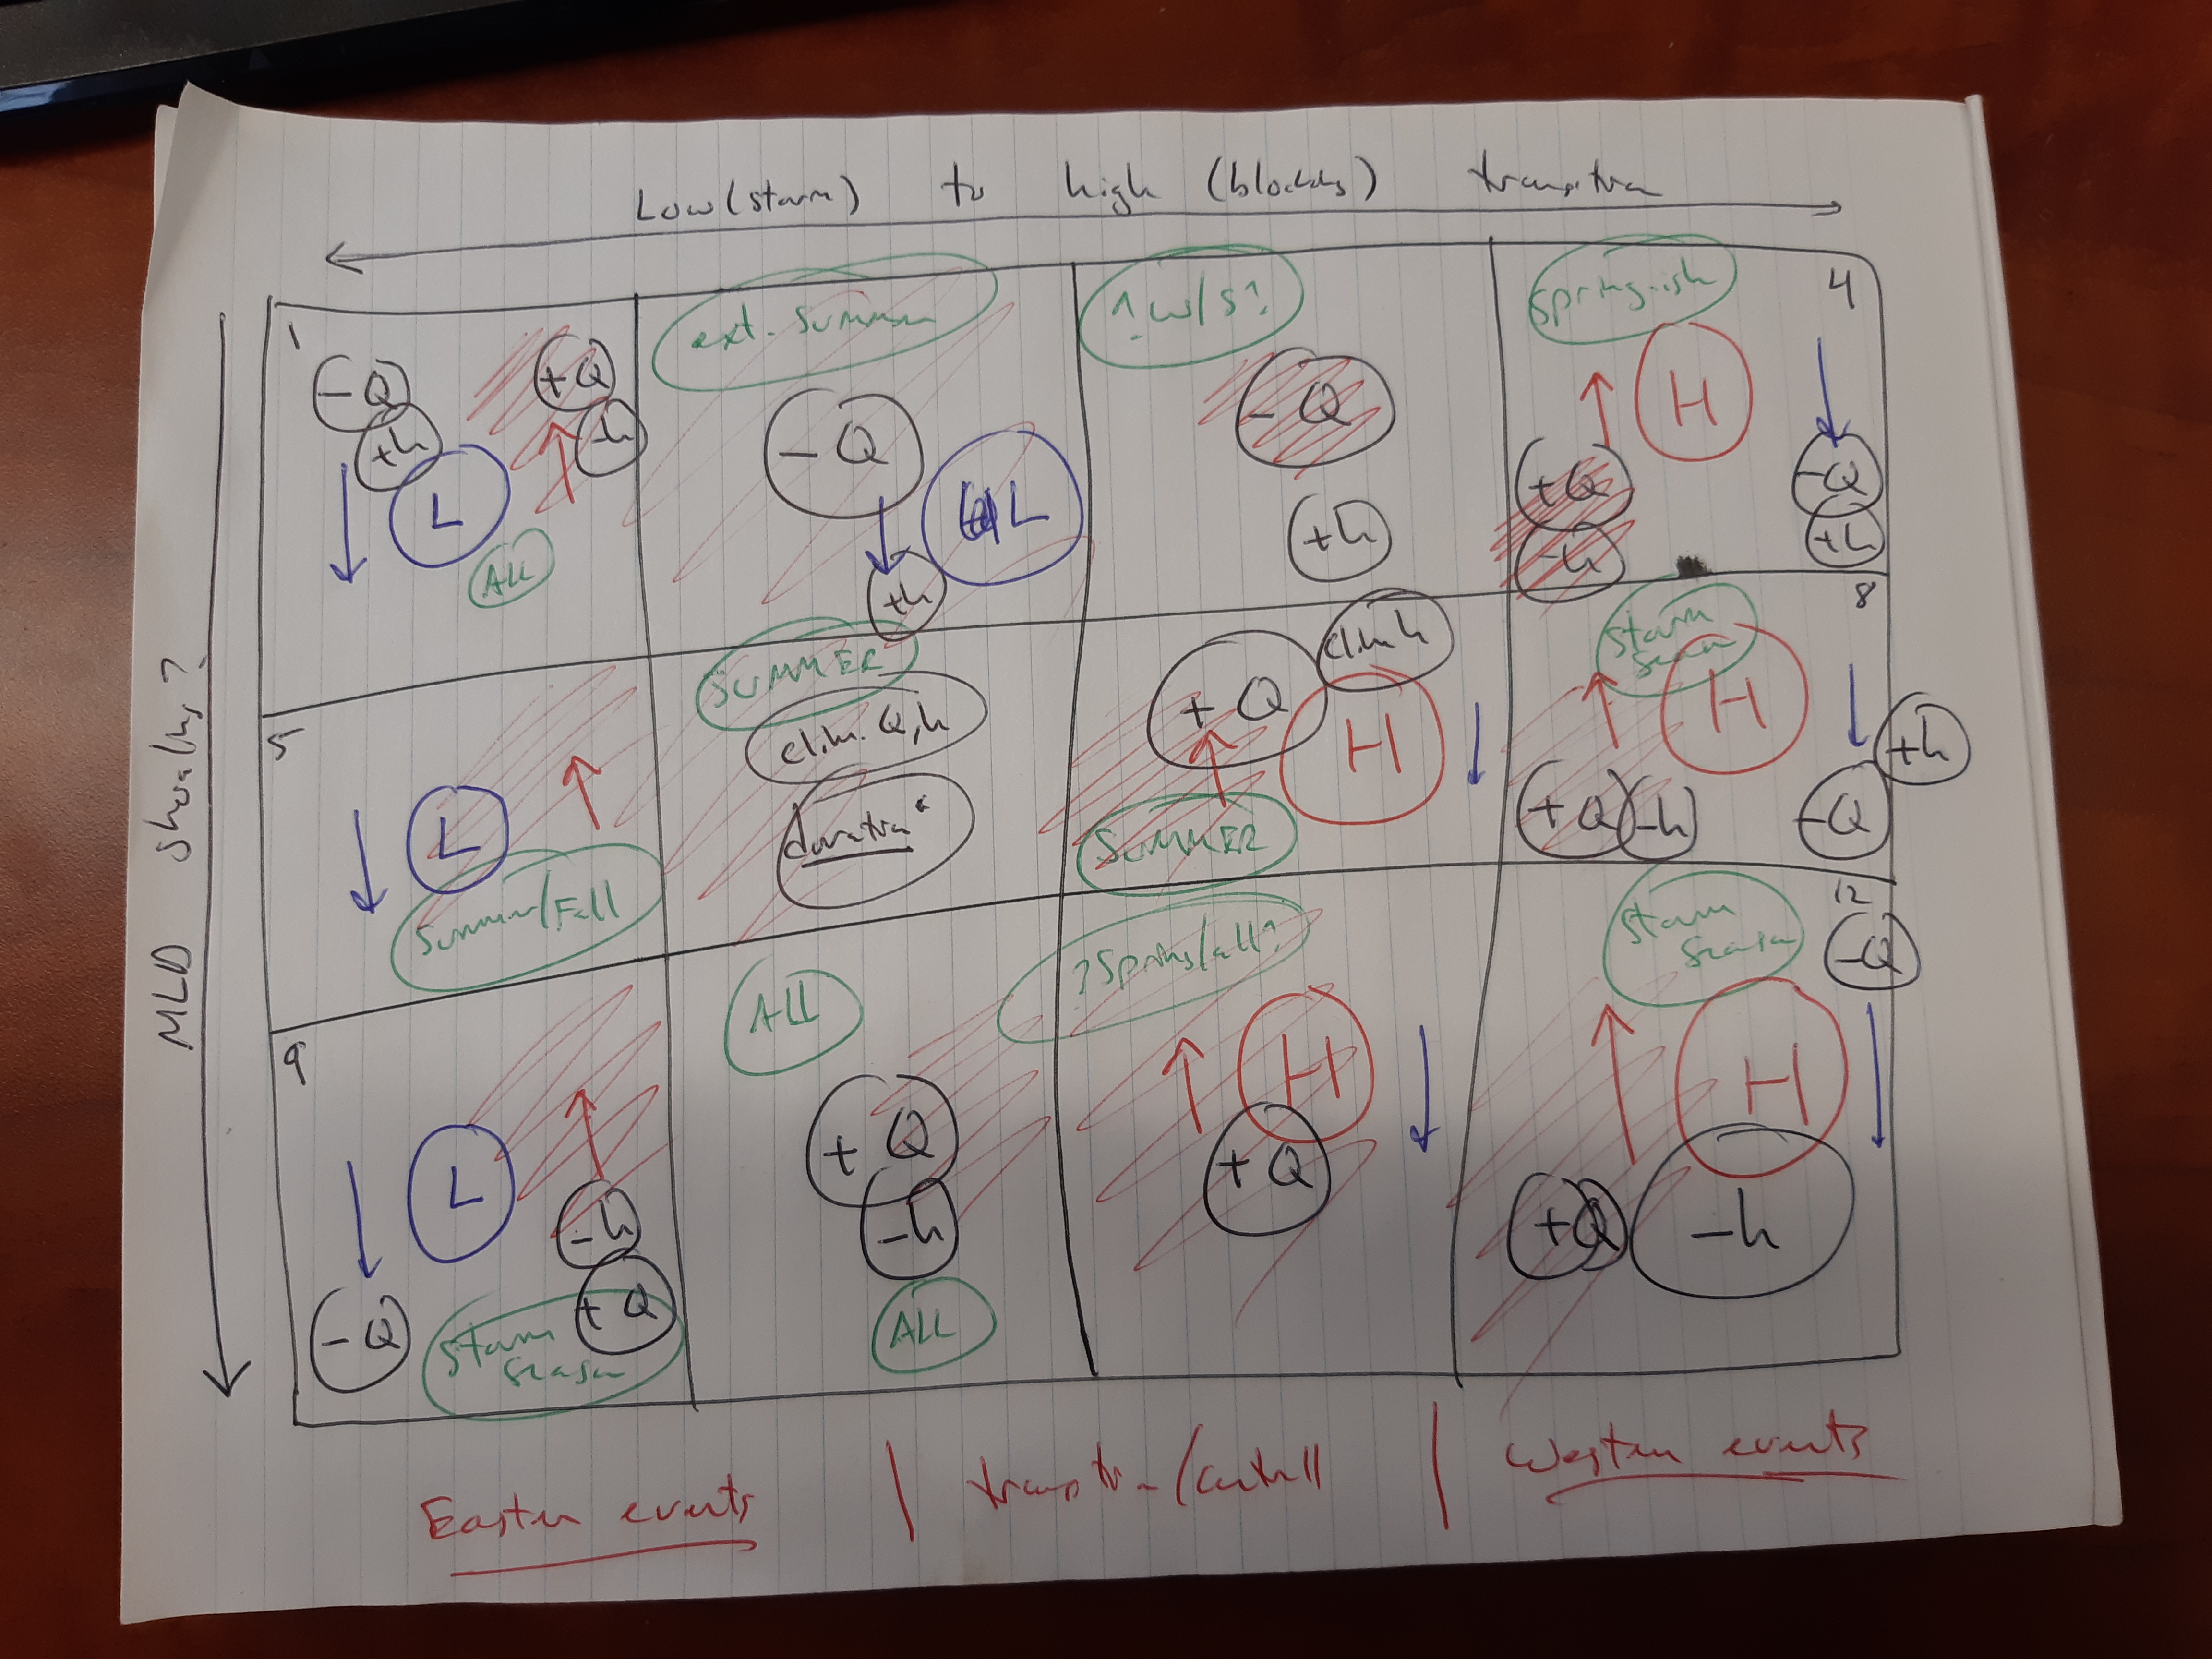 Low (storm) to high (blocking) transition
MLD shoaling?
1
-Q
+h
L
+Q
-h
All
ext. summer
-Q
L
+h
? W/S?
-Q
+h
Spring-ish
4
H
+Q
-h
-Q
+h
5
L
Summer/Fall
SUMMER
clim. Q,h
duration*
+Q
clim h
H
SUMMER
8
storm
season
H
+Q
-h
-Q
+h
9
L
-h
-Q
+Q
storm
season
All
+Q
-h
ALL
?Spring/all?
H
+Q
12
storm
season
-Q
H
+Q
-h
Eastern events | transition/central | Western events